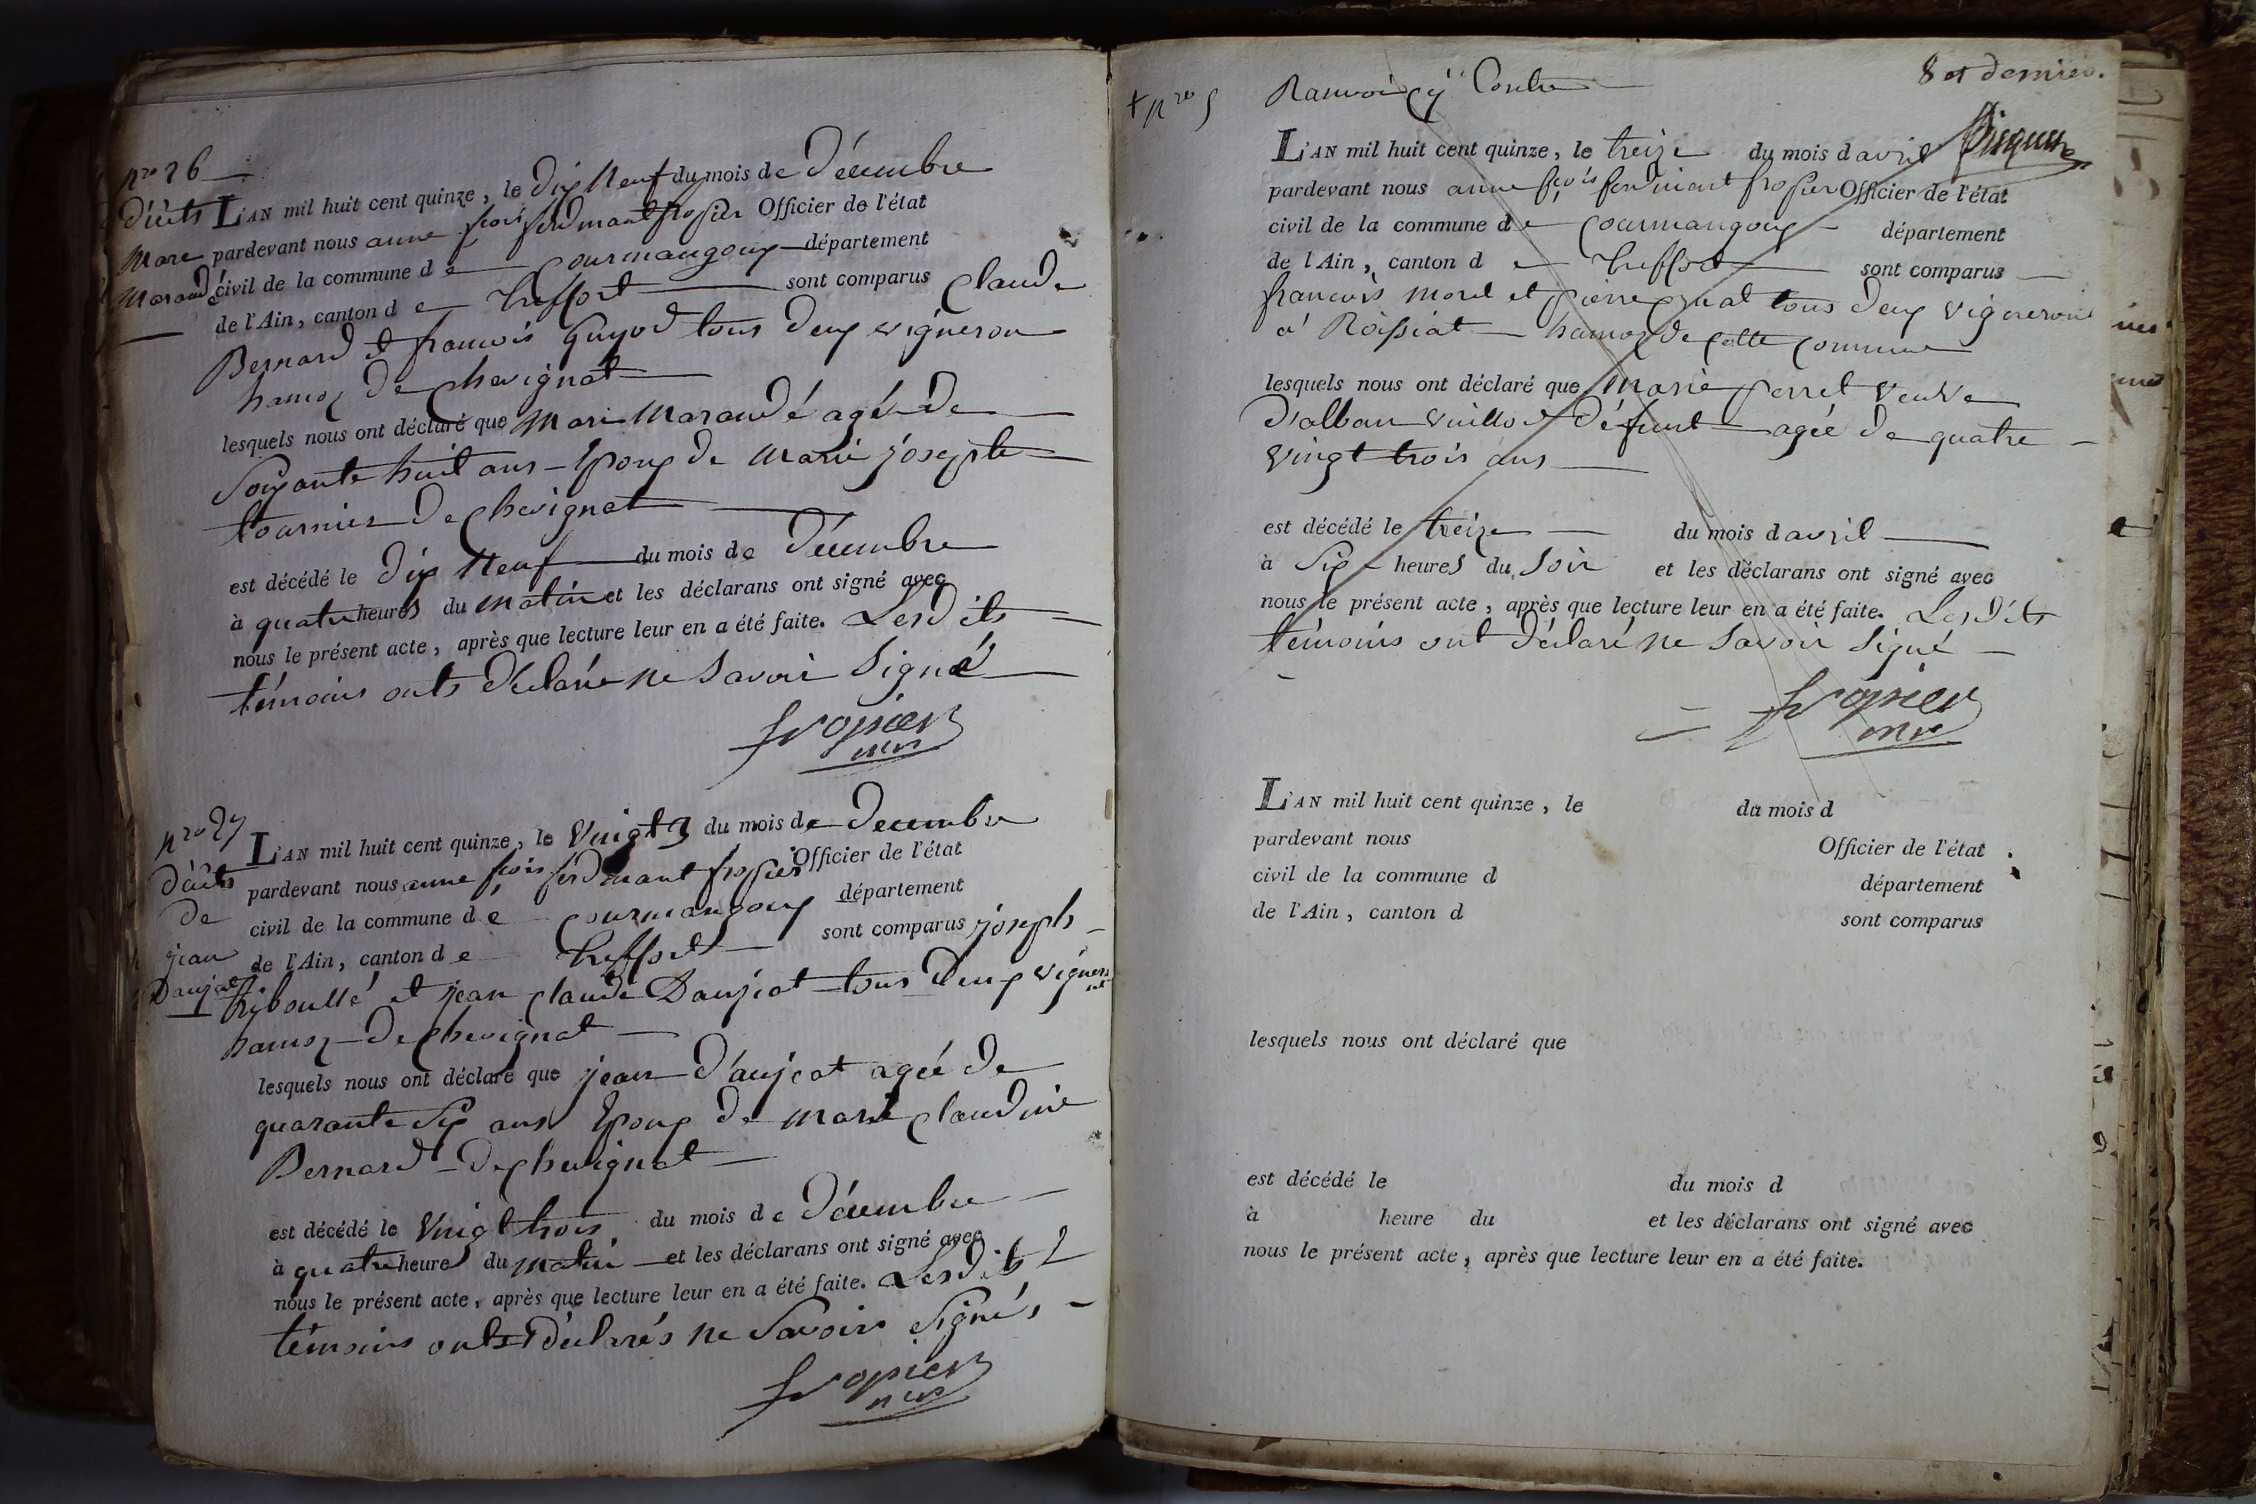 nro 26
décès
Mare
Maraudé
L'AN mil huit cent quinze, le dix Neuf du mois de décembre
pardevant nous anne fçois ferdinant frossier Officier de l'état
civil de la commune de Courmangoux département
de l'Ain, canton de treffort sont comparus Claude
Bernard et francois Guyod tous deux vigneron
hamoz de Chevignat
lesquels nous ont déclaré que Mari Maraudé agée de
Soixante huit ans Epoux de Marie josephte
tournier de Chevignat
est décédé le dix Neuf du mois de décembre
à quatre heures du Matin et les déclarans ont signé avec
nous le présent acte, après que lecture leur en a été faite. Lesdits
témoins onts déclaré ne Savoir Signé
frossier
mre
nro 27
décès
de
jean
Daujeat
L'AN mil huit cent quinze, le Vingt 3 du mois de decembre
pardevant nous anne fçois ferdinant frossier Officier de l'état
civil de la commune de Courmangoux département
de l'Ain, canton de treffort sont comparus joseph
et jean Claude Daujeat tous deux vigneron
hamoz de Chevignat
lesquels nous ont déclaré que jean d'aujeat agée de
quarante Six ans Epoux de Marie Claudine
Bernard de Chevignat
est décédé le Vingt trois du mois de décembre
à quatre heures du matin et les déclarans ont signé avec
nous le présent acte, après que lecture leur en a été faite. Lesdits
témoins onts déclarés ne Savoir Signés
frossier
mre
8 et dernier.
+ nro 5 Ranvoi Cy Contre
L'AN mil huit cent quinze, le treize du mois d avril
pardevant nous anne fçois ferdinant frossier Officier de l'état
civil de la commune de Courmangoux département
de l'Ain, canton de treffort sont comparus
francois Morel et pierre tous deux vignerons
a Roissiat hamoz de Cette Commune
lesquels nous ont déclaré que Marie perret Veuve
d'alban Vuillod défunt agée de quatre
Vingt trois ans
est décédé le treize du mois d avril
à Six heures du Soir et les déclarans ont signé avec
nous le présent acte, après que lecture leur en a été faite. Lesdits
témoins ont déclaré ne Savoir Signé
frossier
mre
L'AN mil huit cent quinze, le du mois d
pardevant nous Officier de l'état
civil de la commune d département
de l'Ain, canton d sont comparus
lesquels nous ont déclaré que
est décédé le du mois d
à heure du et les déclarans ont signé avec
nous le présent acte, après que lecture leur en a été faite.